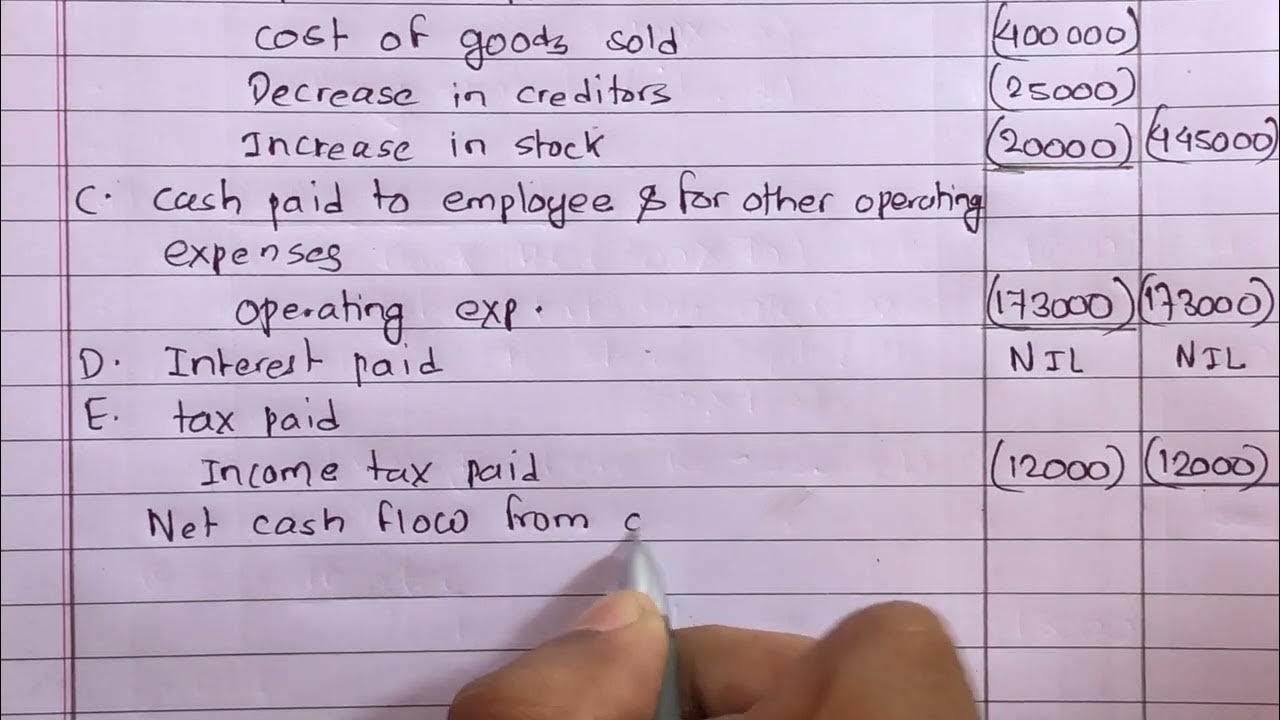 cost of goods sold (400000)
Decrease in creditors (25000)
Increase in stock (20000) (445000)
C. cash paid to employee & for other operating
expenses
operating exp. (173000) (173000)
D. Interest paid NIL NIL
E. tax paid
Income tax paid (12000) (12000)
Net cash flow from